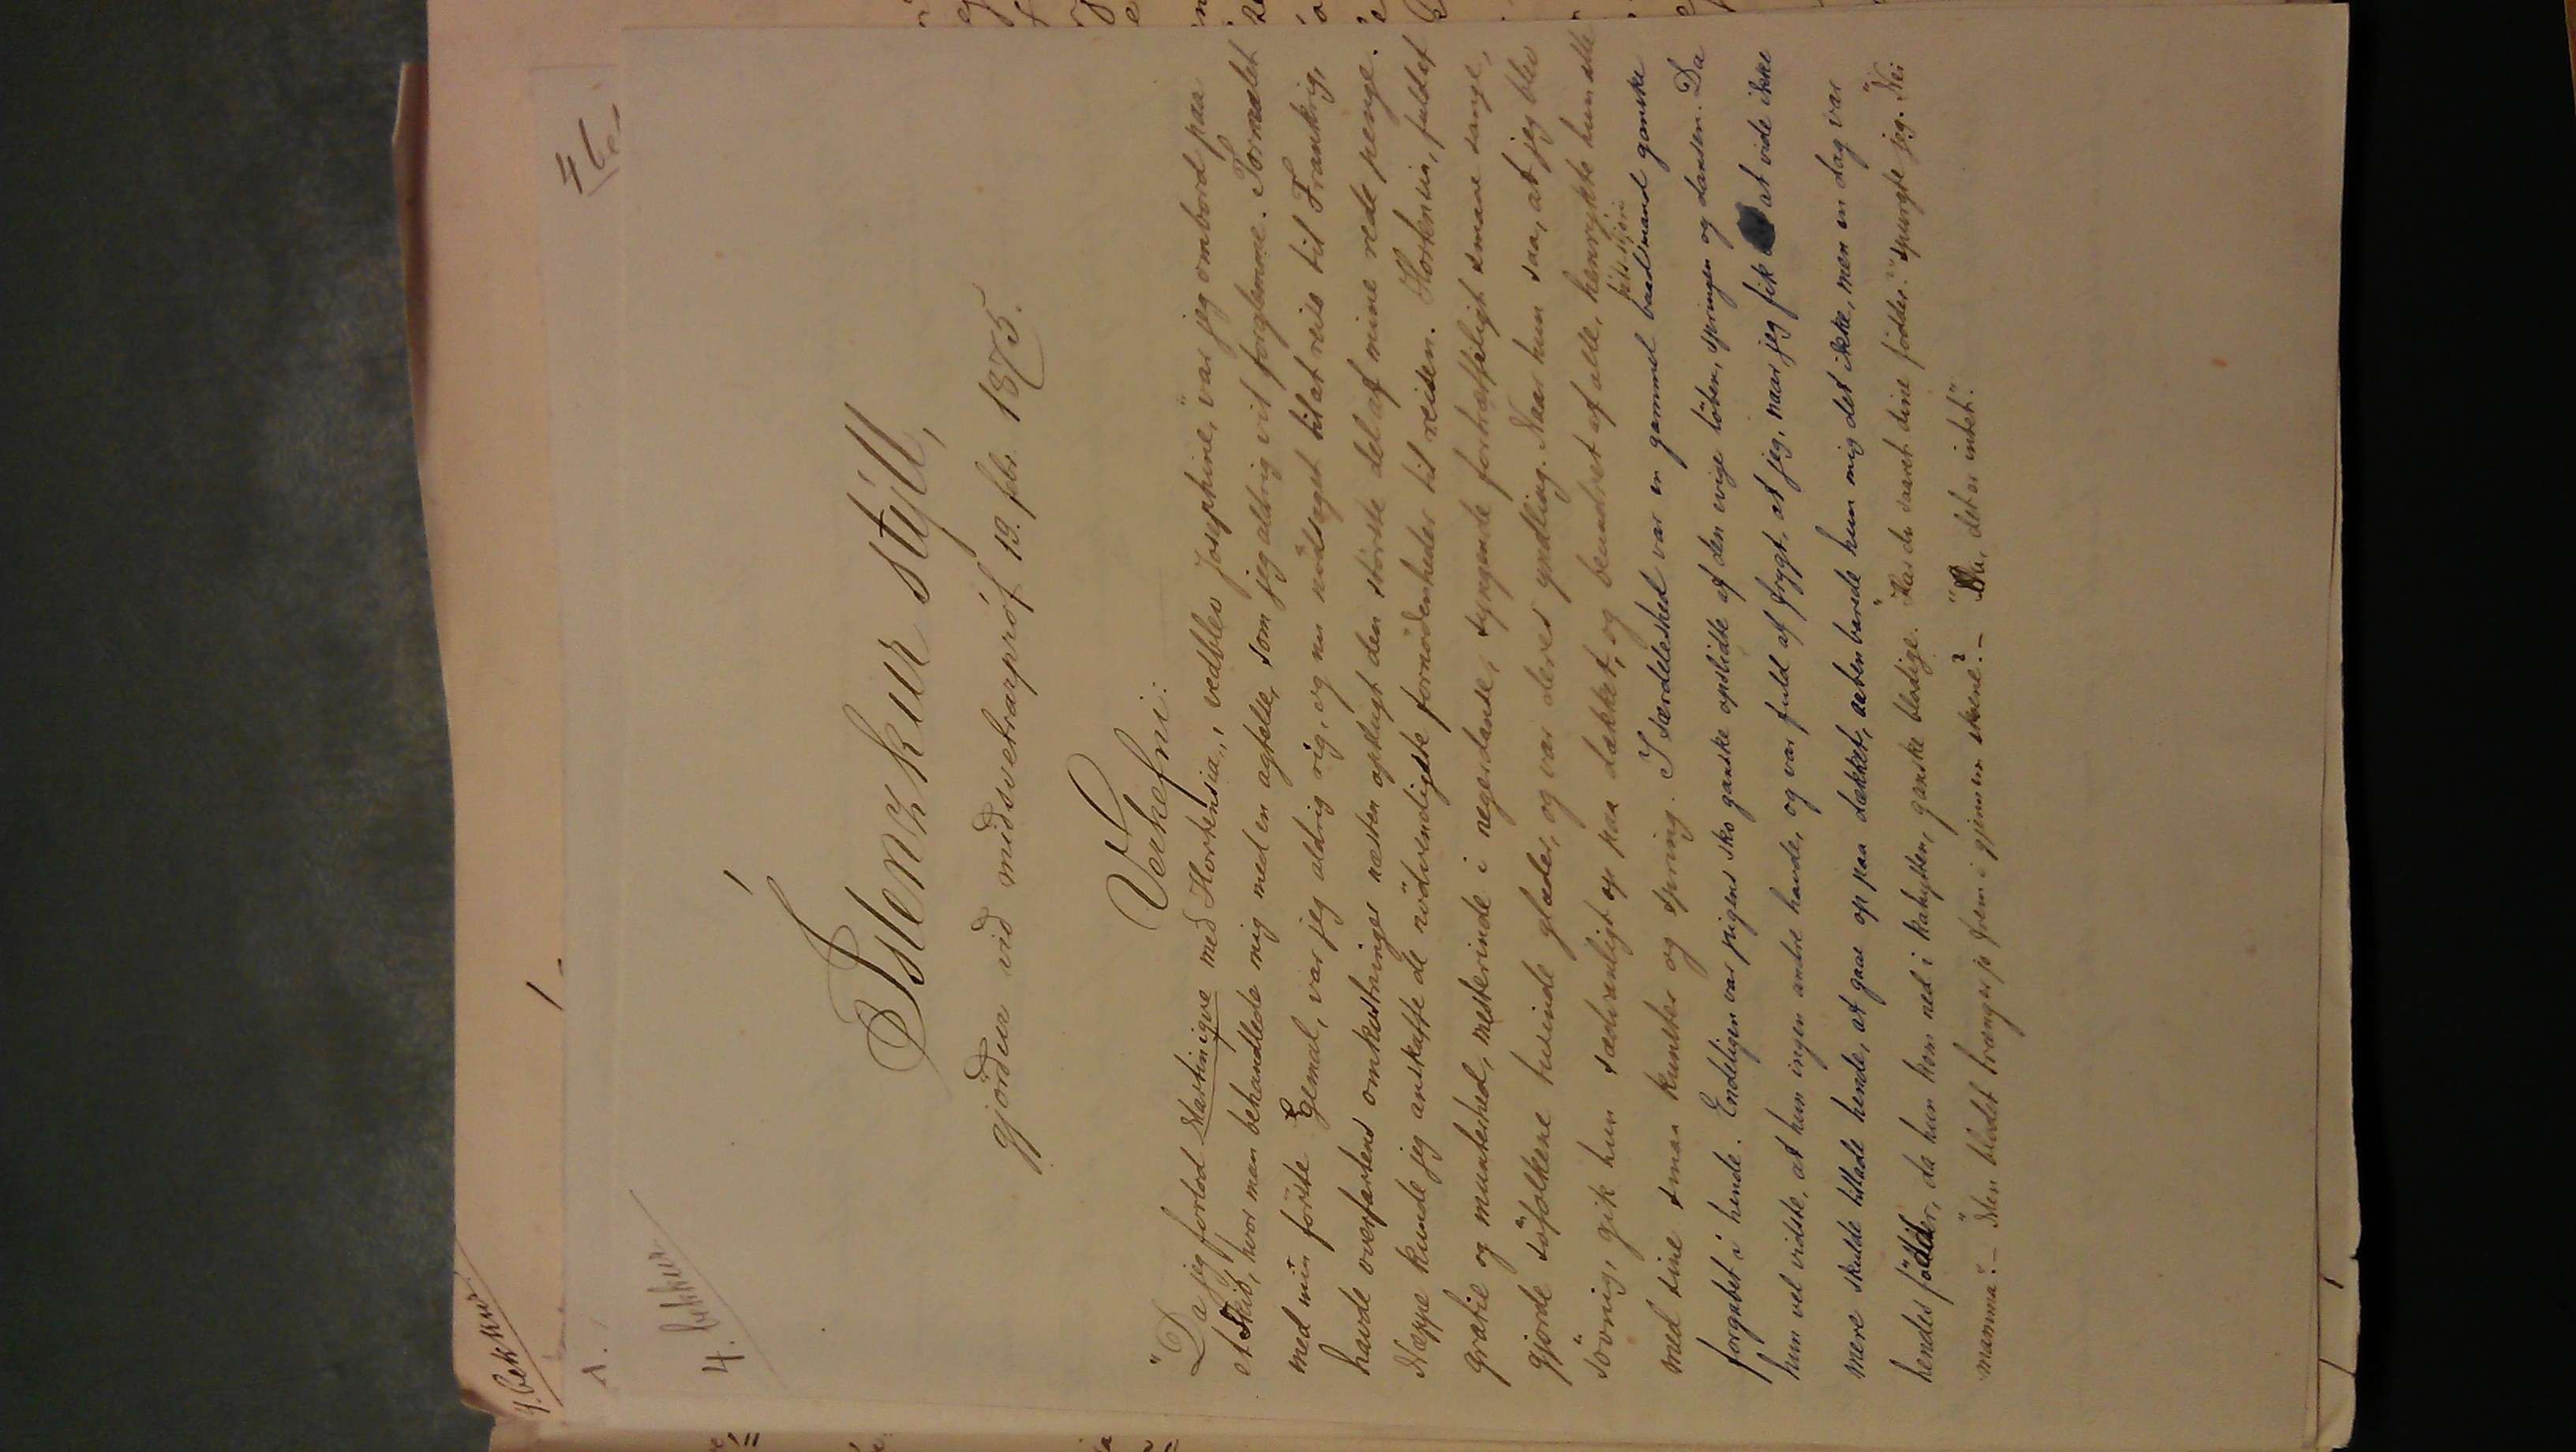 4. bekkur
Íslenzkur stýll,
gjörður við miðsvetrarpróf 19. febr. 1875.
Verkefni:
"Da jeg forlod Martinique med Hortensia", vedblev Josephine, "var jeg ombord paa
et Skib, hvor man behandlede mig med en agtelse, som jeg aldrig vil forglemme. Formælet
med min förste Gemal, var jeg aldrig rig, og nu nödsaget til at reise til Frankrig,
havde overfartens omkostninger næsten opslugt den störste del af mine rede penge.
Næppe kunde jeg anskaffe de nödvendigste fornödenheder til reisen. Hortensia, fuld af
gratie og munterhed, mesterinde i negerdanse, syngende fortræffeligt smaae sange,
gjorde söfolkene tusinde glæder, og var deres yndling. Naar hun saa, at jeg blev
sövnig, gik hun sædvanligt op paa dækket, og beundret af alle, henrykte hun alle
med sine smaa kunster og spring. I særdeleshed var en gammel baadsmand ganske
forgabet i hende. Endeligen var pigens sko ganske opslidte af den evige löben, springen og dansen. Da
hun vel vidste, at hun ingen andre havde, og var fuld af frygt, at jeg, naar jeg fik at vide ikke
mere skulde tillade hende, at gaae op paa dækket, aabenbarede hun mig det ikke, men en dag var
hendes födder, da hun kom ned i kahytten, ganske blodige. "Har du saaret dine födder?" spurgte jeg. "Nei
mamma". – "Men blodet trænger jo frem igjennem skoene". – "Du, det er intet".
1.
4. bekkur